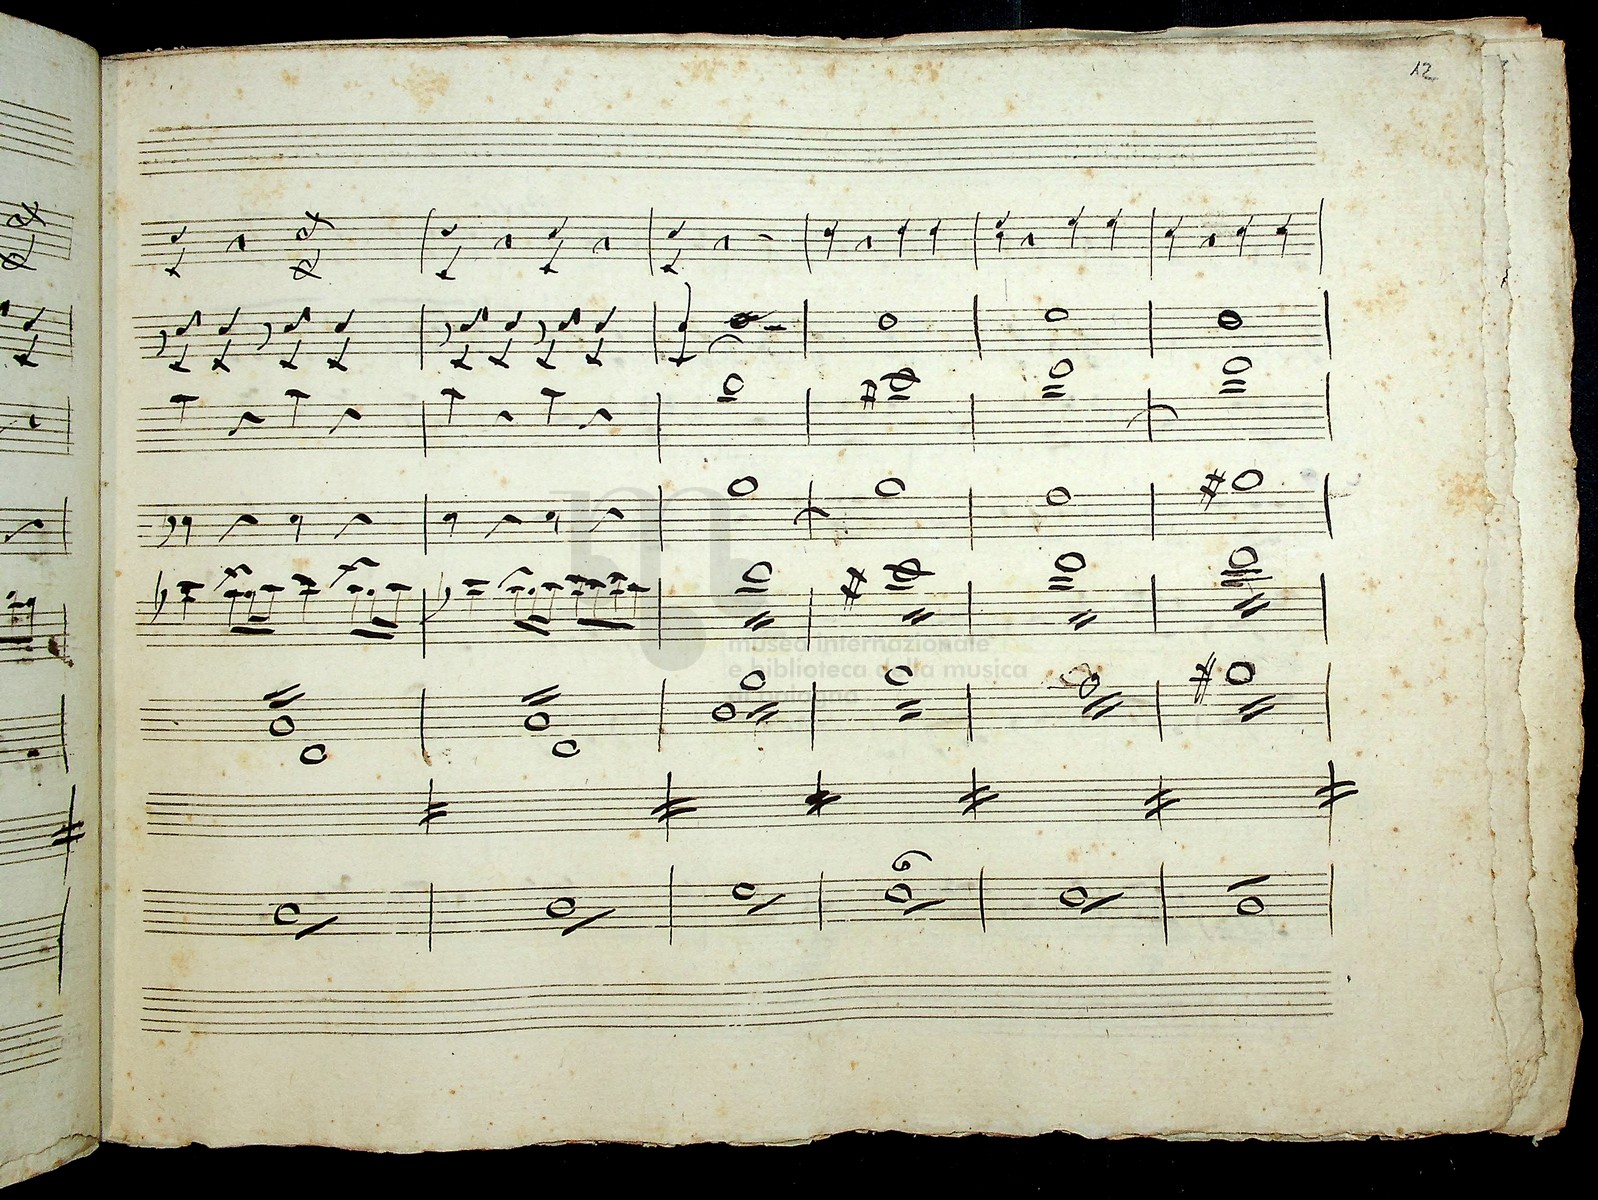 12
museo internazionale
e biblioteca della musica
di bologna